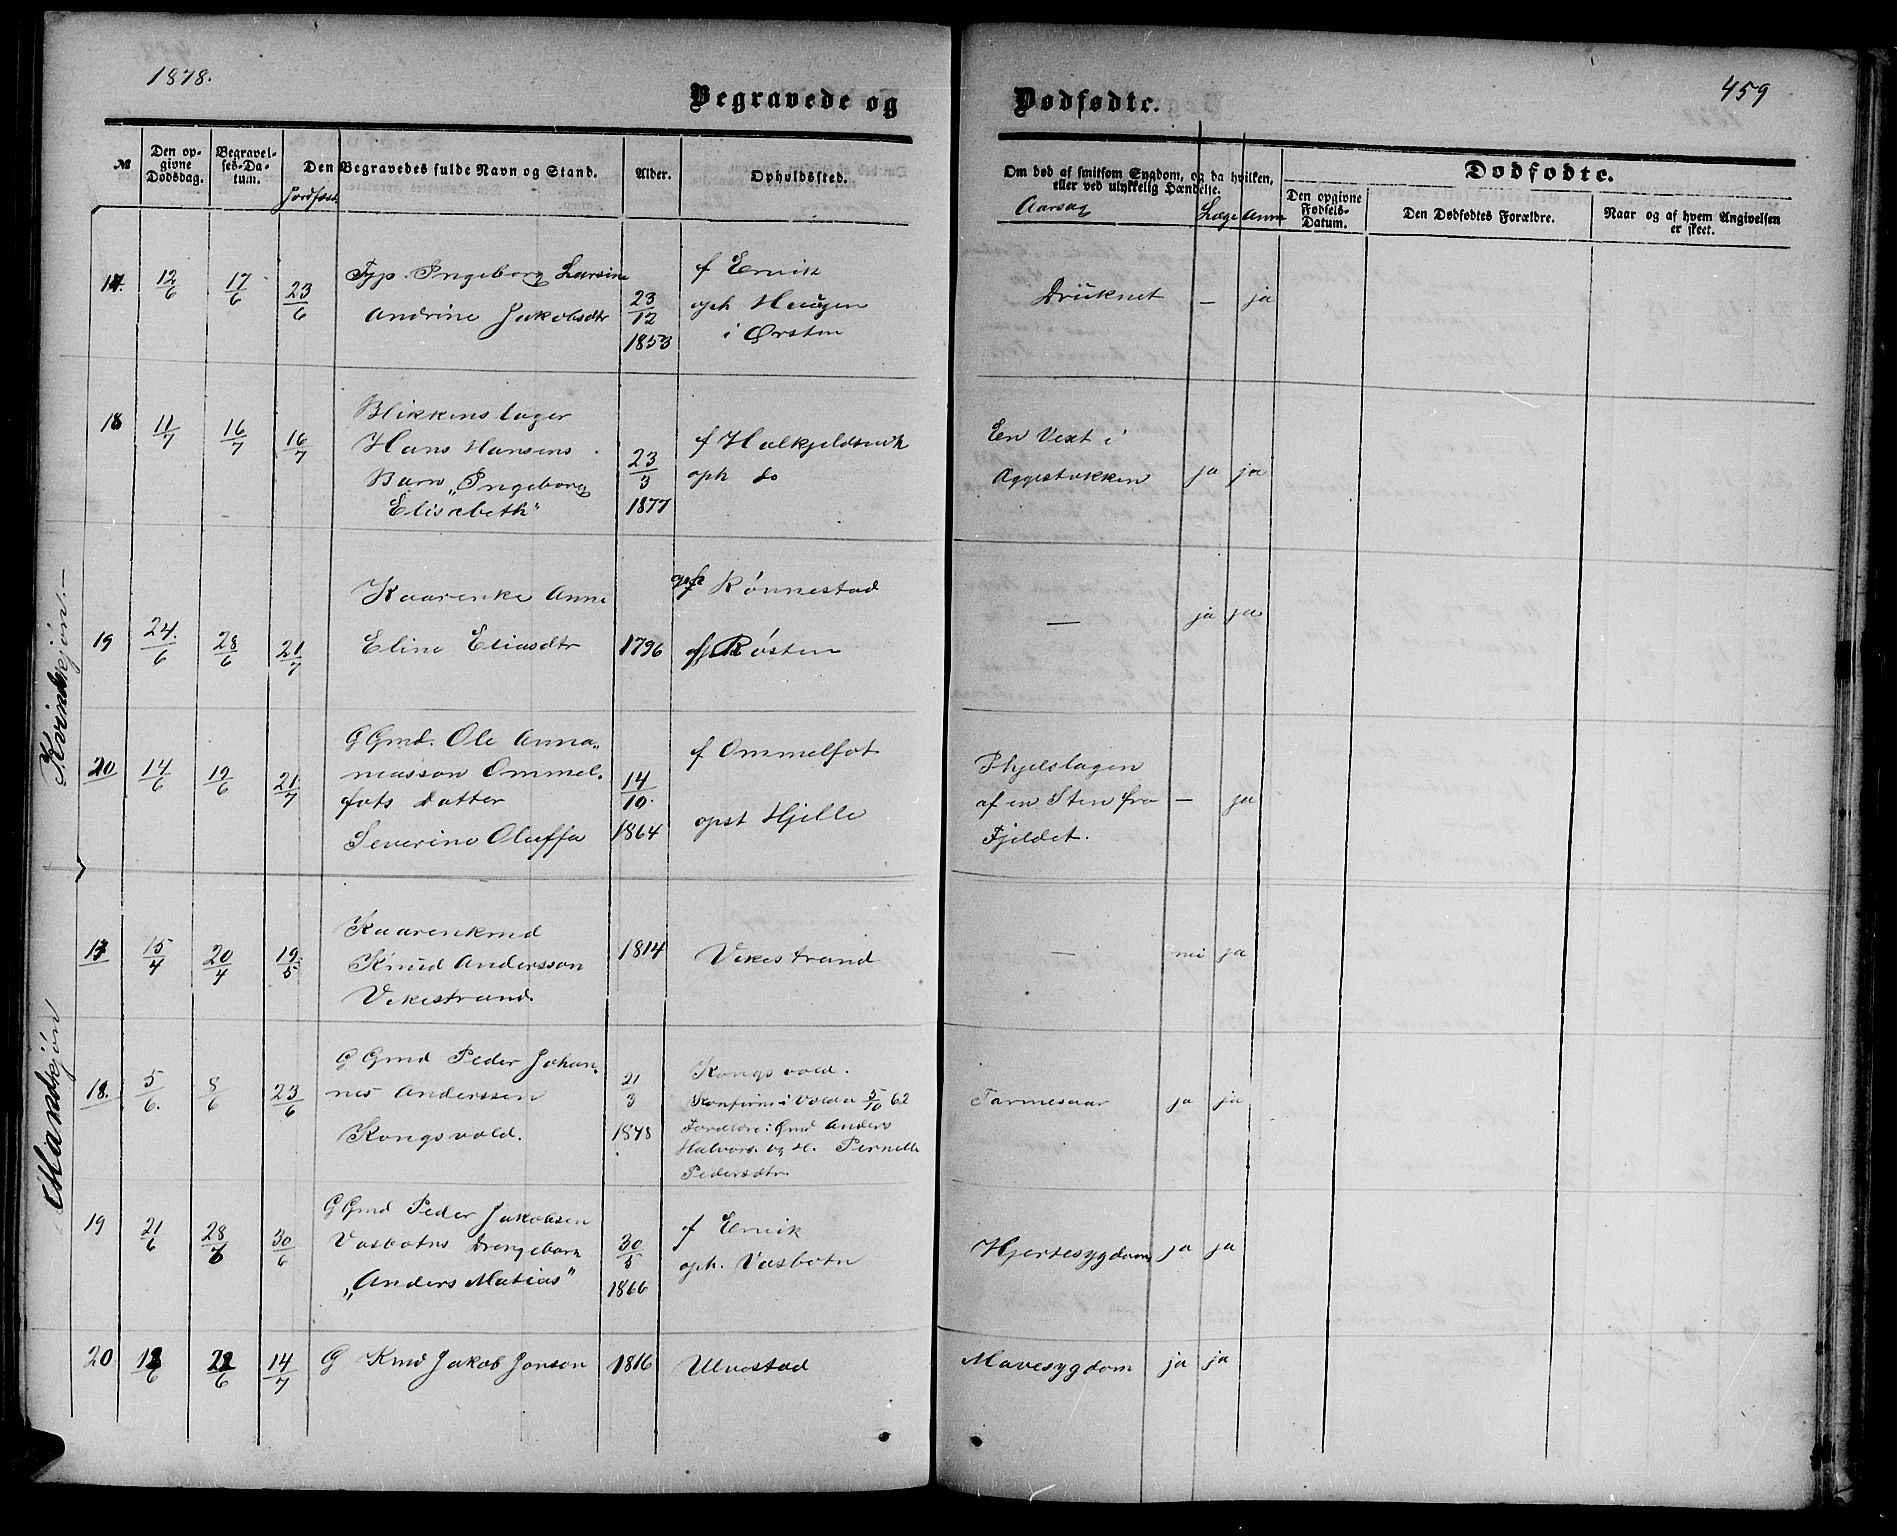 1878.
Begravede og
Dødfødte.
459
№
Den opgivne Dødsdag.
Begravelses-Datum.
Jordfæst.
Den Begravedes fulde Navn og Stand.
Alder.
Opholdssted.
Om død af smitsom Sygdom, og da hvilken, eller ved ulykkelig Hændelse.
Aarsag
Læge
Anm
Dødfødte.
Den opgivne Fødsels-Datum.
Den Dødfødtes Forældre.
Naar og af hvem Angivelsen er skeet.
Kvindekjön.—
17. 12/6 17/6 23/6 Tjp. Ingeborg Larsine 23/12 1853 f Ervik Druknet — ja
Andrine Jakobsdtr oph Haugen
i Ørsten
18 11/7 16/7 16/7 Blikkenslager 23/3 1877 f Halkjeldsvik En Vext i ja ja
Hans Hansens oph do Æggestokken
Barn „Ingeborg
Elisabeth"
19 24./6 28/6 21/7 Kaarenke Anne 1796 oph Rónnestad — ja ja
Eline Eliasdtr f Rósten
20 14/6 19/6 21/7 G Gmd. Ole Anna- 14/10. 1864 f Ommelfot Ihjelslagen — ja
niasson Ommel- opst Hjelle af en Sten fra
fots Datter Fjeldet.
Severine Oluffa
Mandkjön
17 15/4 20/4 19/5 Kaarenkmd 1814 Vikestrand — nei ja
Knud Andersson
Vikestrand.
18. 5/6. 8/6 23/6 G Gmd Peder Johan- 21/3 1848 Kongsvold. Tarmesaar ja ja
nes Anderssen Konfirm i Volden 5/10 62
Kongsvold. Forældre: Gmd Anders
Halvors. og H. Pernille
Pedersdtr.
19 21/6 28/6 30/6 G Gmd Peder Jakobsen 30/5 1866 f Ervik Hjertesygdom ja ja
Vasbotns Drengebarn oph. Vasbotn
„Anders Matias"
20 18/6 22/6 14/7 G Kmd Jakob Jonson 1816 Ulvestad Mavesygdom ja ja